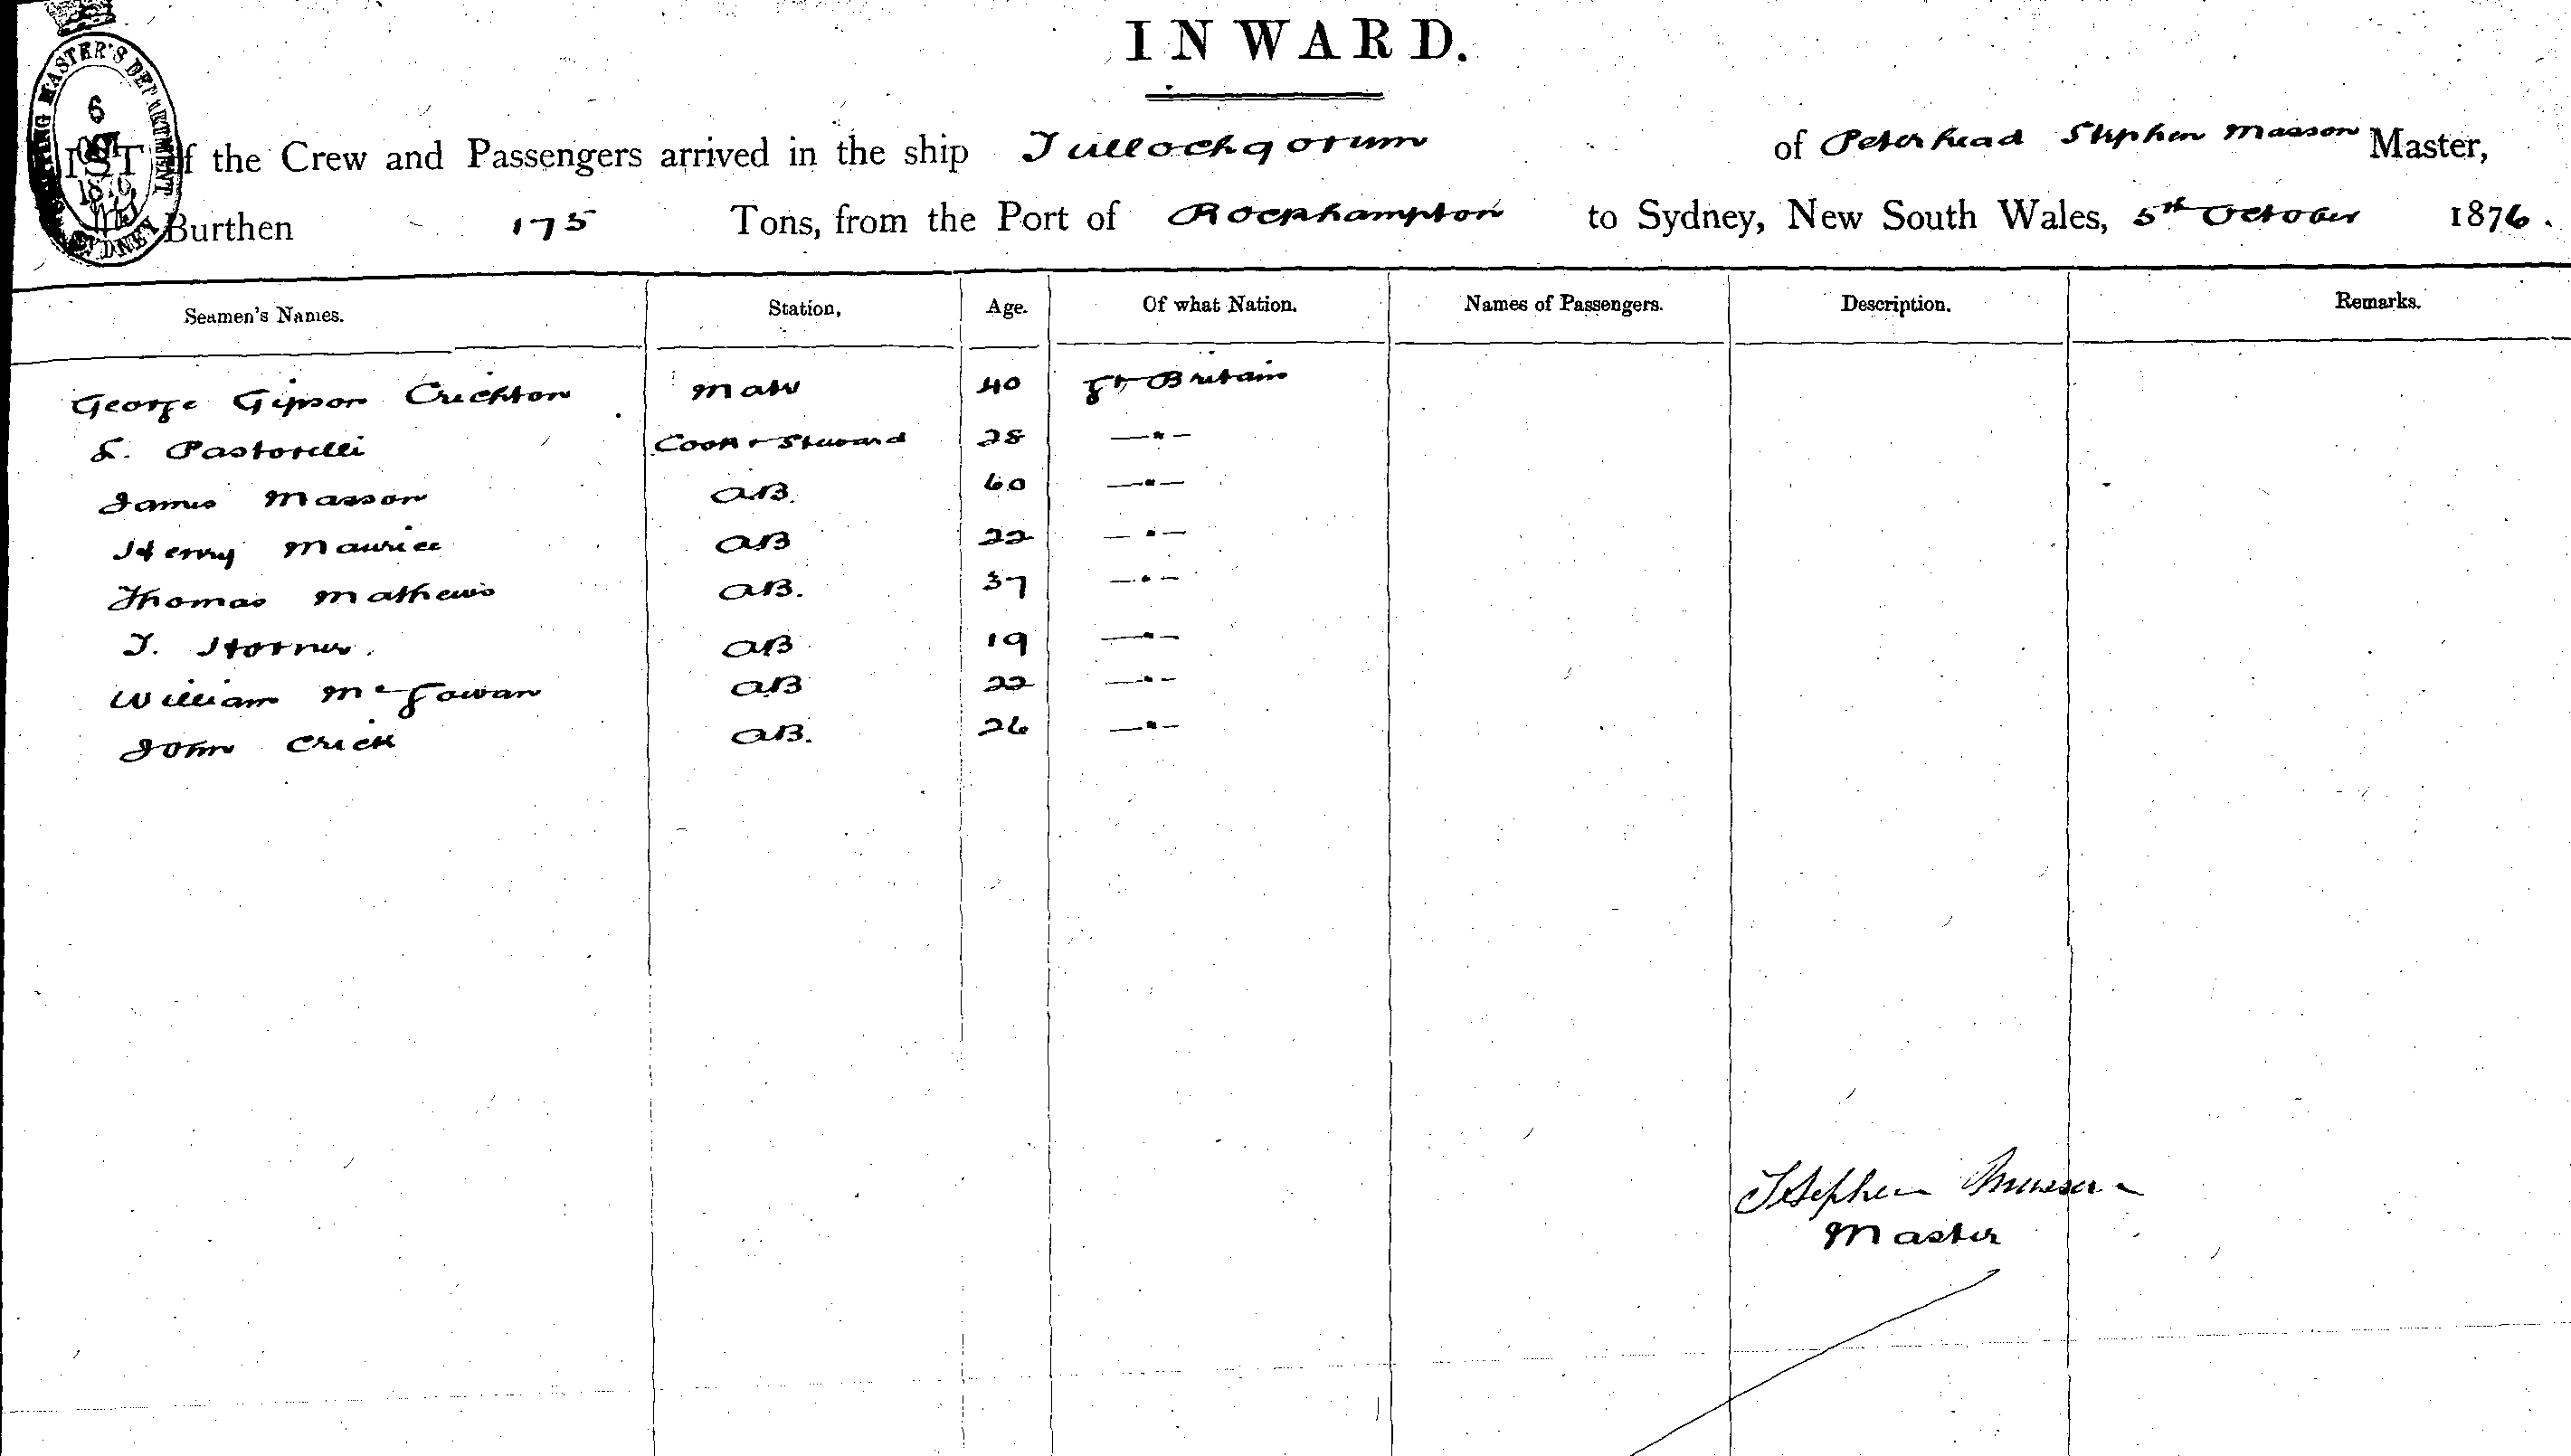 INWARD.
SHIPPING MASTER'S DEPARTMENT SYDNEY
6
OCT
1876
LIST of the Crew and Passengers arrived in the ship Tullochgorum of Peterhead Stephen Masson Master,
Burthen 175 Tons, from the Port of Rockhampton to Sydney, New South Wales, 5th October 1876.
Seamen's Names. Station, Age. Of what Nation. Names of Passengers. Description. Remarks.
George Gipson Crichton Mate 40 Gt Britain
L. Pastorelli Cook & Steward 28 —"—
James Masson AB. 60 —"—
Henry Maurice AB 22 —"—
Thomas Mathews AB. 37 —"—
T. Horner. AB 19 —"—
William McGowan AB 22 —"—
John Crick AB. 26 —"—
Stephen Masson
Master